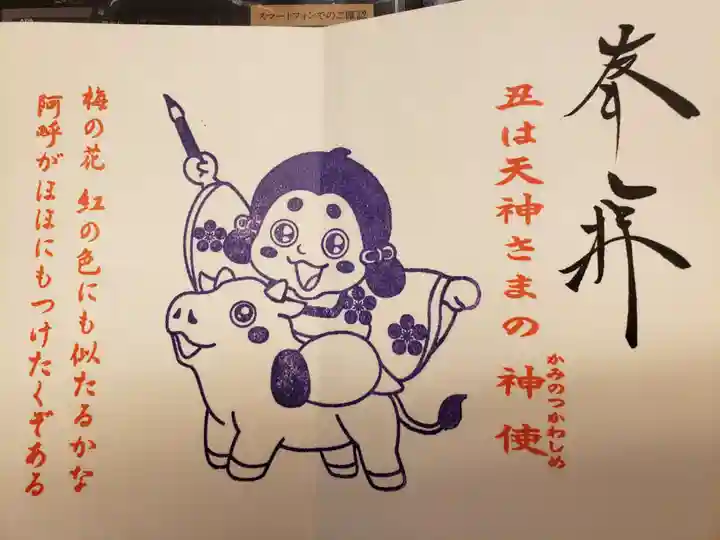 スマートフォンでのご確認
奉拝
丑は天神さまの神使
かみのつかわしめ
梅の花 紅の色にも似たるかな
阿呼がほほにもつけたくぞある